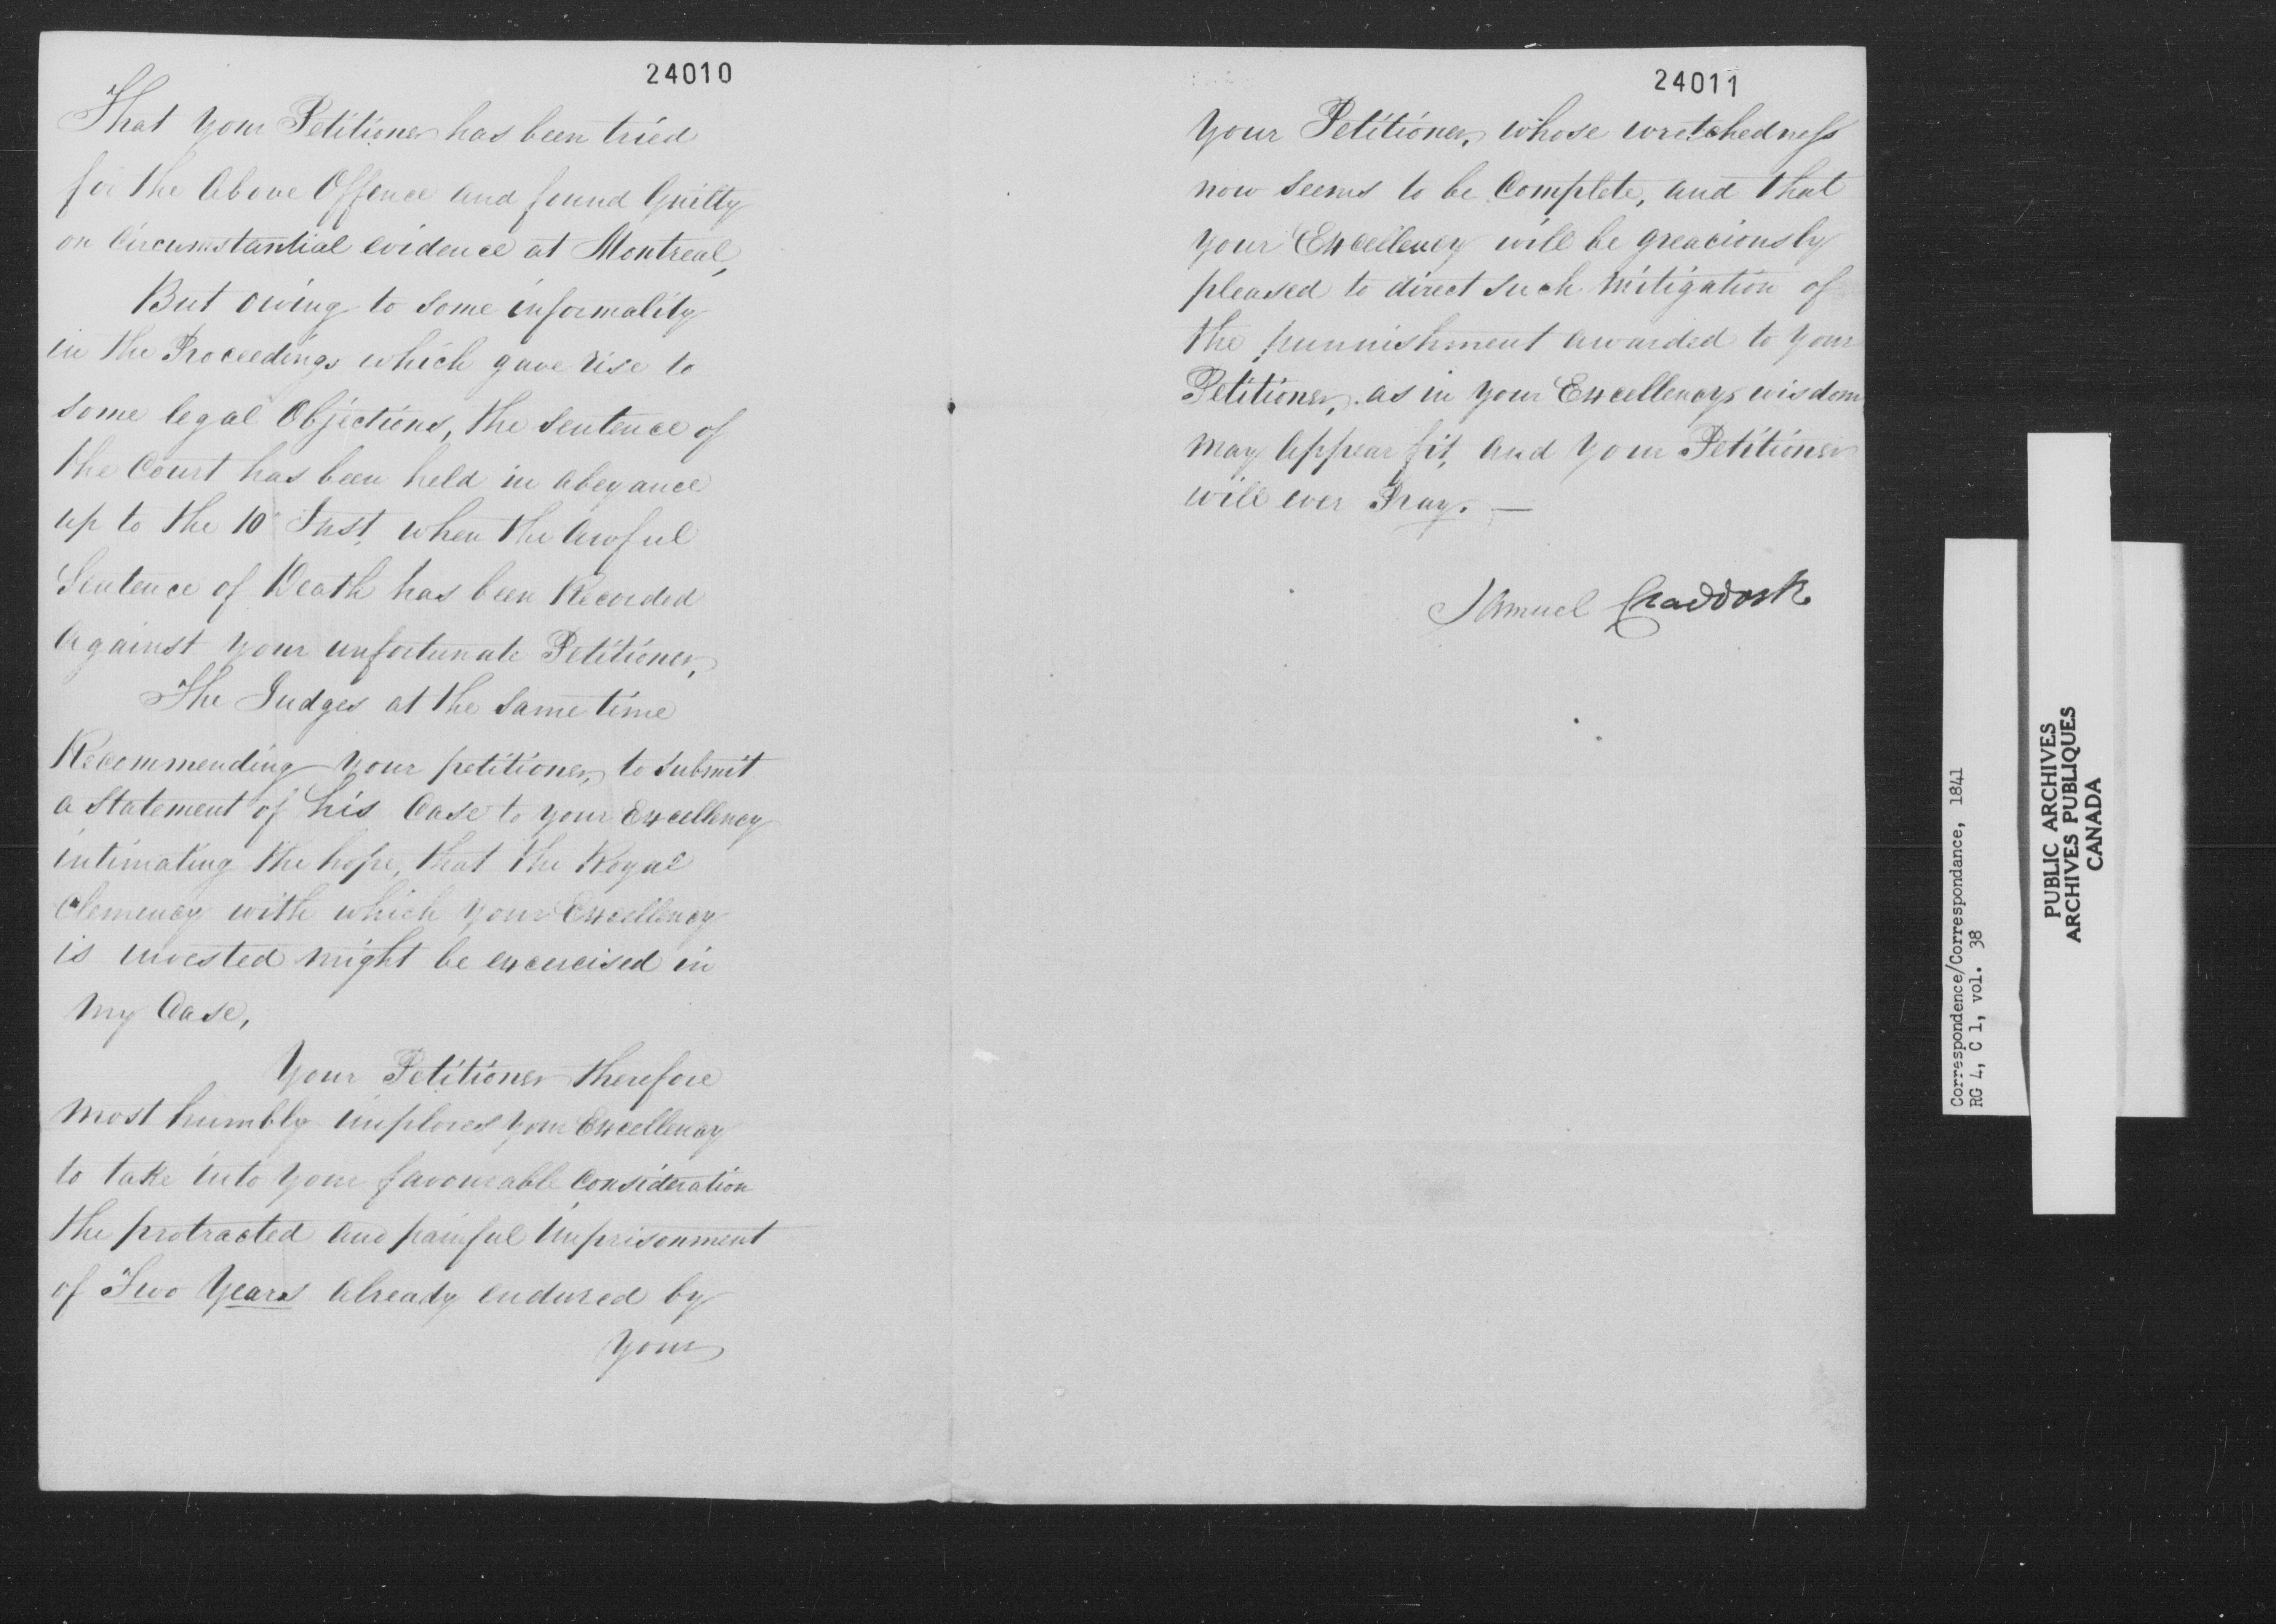 24010
That your Petitioner has been tried
for the above Offence and found Guilty
on Circumstantial evidence at Montreal,
But owing to some informality
in the Proceedings which gave rise to
some legal Objections, the sentence of
the Court has been held in abeyance
up to the 10 Inst. when the awful
Sentence of Death has been Recorded
against your unfortunate Petitioner,
The Judges at the same time
Recommending your petitioner, to submit
a Statement of his Case to your Excellency
intimating the hope, that the Royal
Clemency with which your Excellency
is invested might be exercised in
my Case,
Your Petitioner therefore
most humbly implores your Excellency
to take into your favourable consideration
the protracted and painful imprisonment
of Two Years already endured by
your
24011
your Petitioner, whose wretchedness
now seems to be Complete, and that
your Excellency will be greaciously
pleased to direct such mitigation of
the punnishment awarded to your
Petitioner, as in your Excellencys wisdom
may appear fit, and your Petitioner
will ever Pray. —
Samuel Craddock
Correspondence/Correspondance, 1841
RG 4, C 1, vol. 38
PUBLIC ARCHIVES
ARCHIVES PUBLIQUES
CANADA